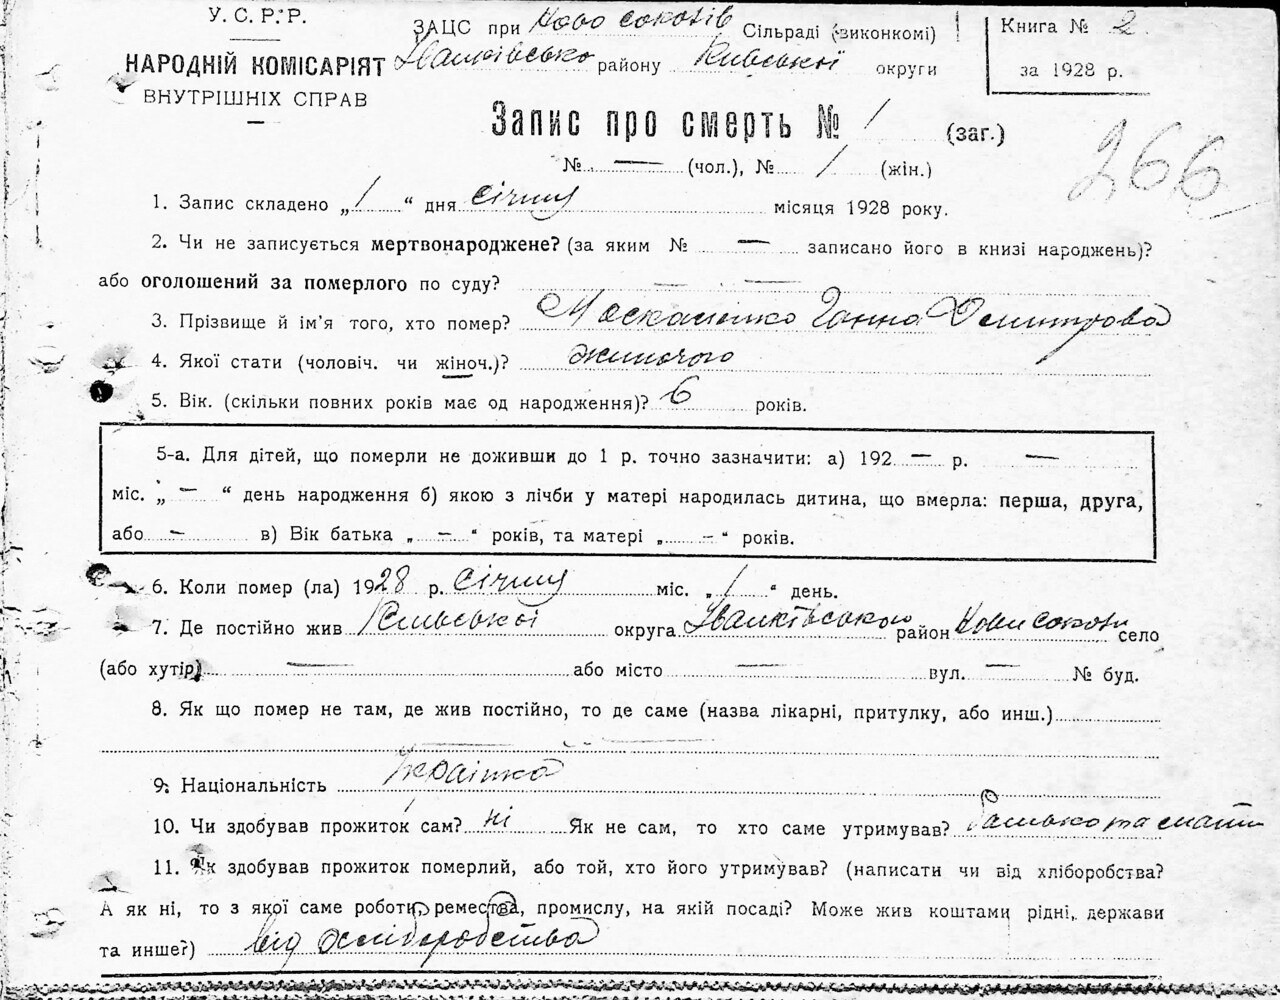 У. С. Р. Р.
ЗАЦС при Ново Соколів Сільраді (виконкомі)
Книга № 2
НАРОДНІЙ КОМІСАРІЯТ
Іванківсько району Київської округи
за 1928 р.
ВНУТРІШНІХ СПРАВ
Запис про смерть № 1 (заг.)
266
№ — (чол.), № 1 (жін.)
1. Запис складено „1“ дня січня місяця 1928 року.
2. Чи не записується мертвонароджене? (за яким № — записано його в книзі народжень)?
або оголошений за померлого по суду? — —
3. Прізвище й ім'я того, хто помер? Москаленко Ганна Дмитрова
4. Якої стати (чоловіч. чи жіноч.)? жиночого
5. Вік. (скільки повних років має од народження)? 6 років.
5-а. Для дітей, що померли не доживши до 1 р. точно зазначити: а) 192 — р. —
міс. „ — “ день народження б) якою з лічби у матері народилась дитина, що вмерла: перша, друга,
або — в) Вік батька „ — “ років, та матері „ — “ років.
6. Коли помер (ла) 1928 р. січня міс. „ 1 “ день.
7. Де постійно жив Київської округа Іванківського район Нови Соколи село
(або хутір) — або місто — вул. — № буд.
8. Як що помер не там, де жив постійно, то де саме (назва лікарні, притулку, або инш.)
9. Національність Українка
10. Чи здобував прожиток сам? ні Як не сам, то хто саме утримував? Батько та мати
11. Як здобував прожиток померлий, або той, хто його утримував? (написати чи від хліборобства?
А як ні, то з якої саме роботи, ремества, промислу, на якій посаді? Може жив коштами рідні, держави
та инше?) від хліборобства